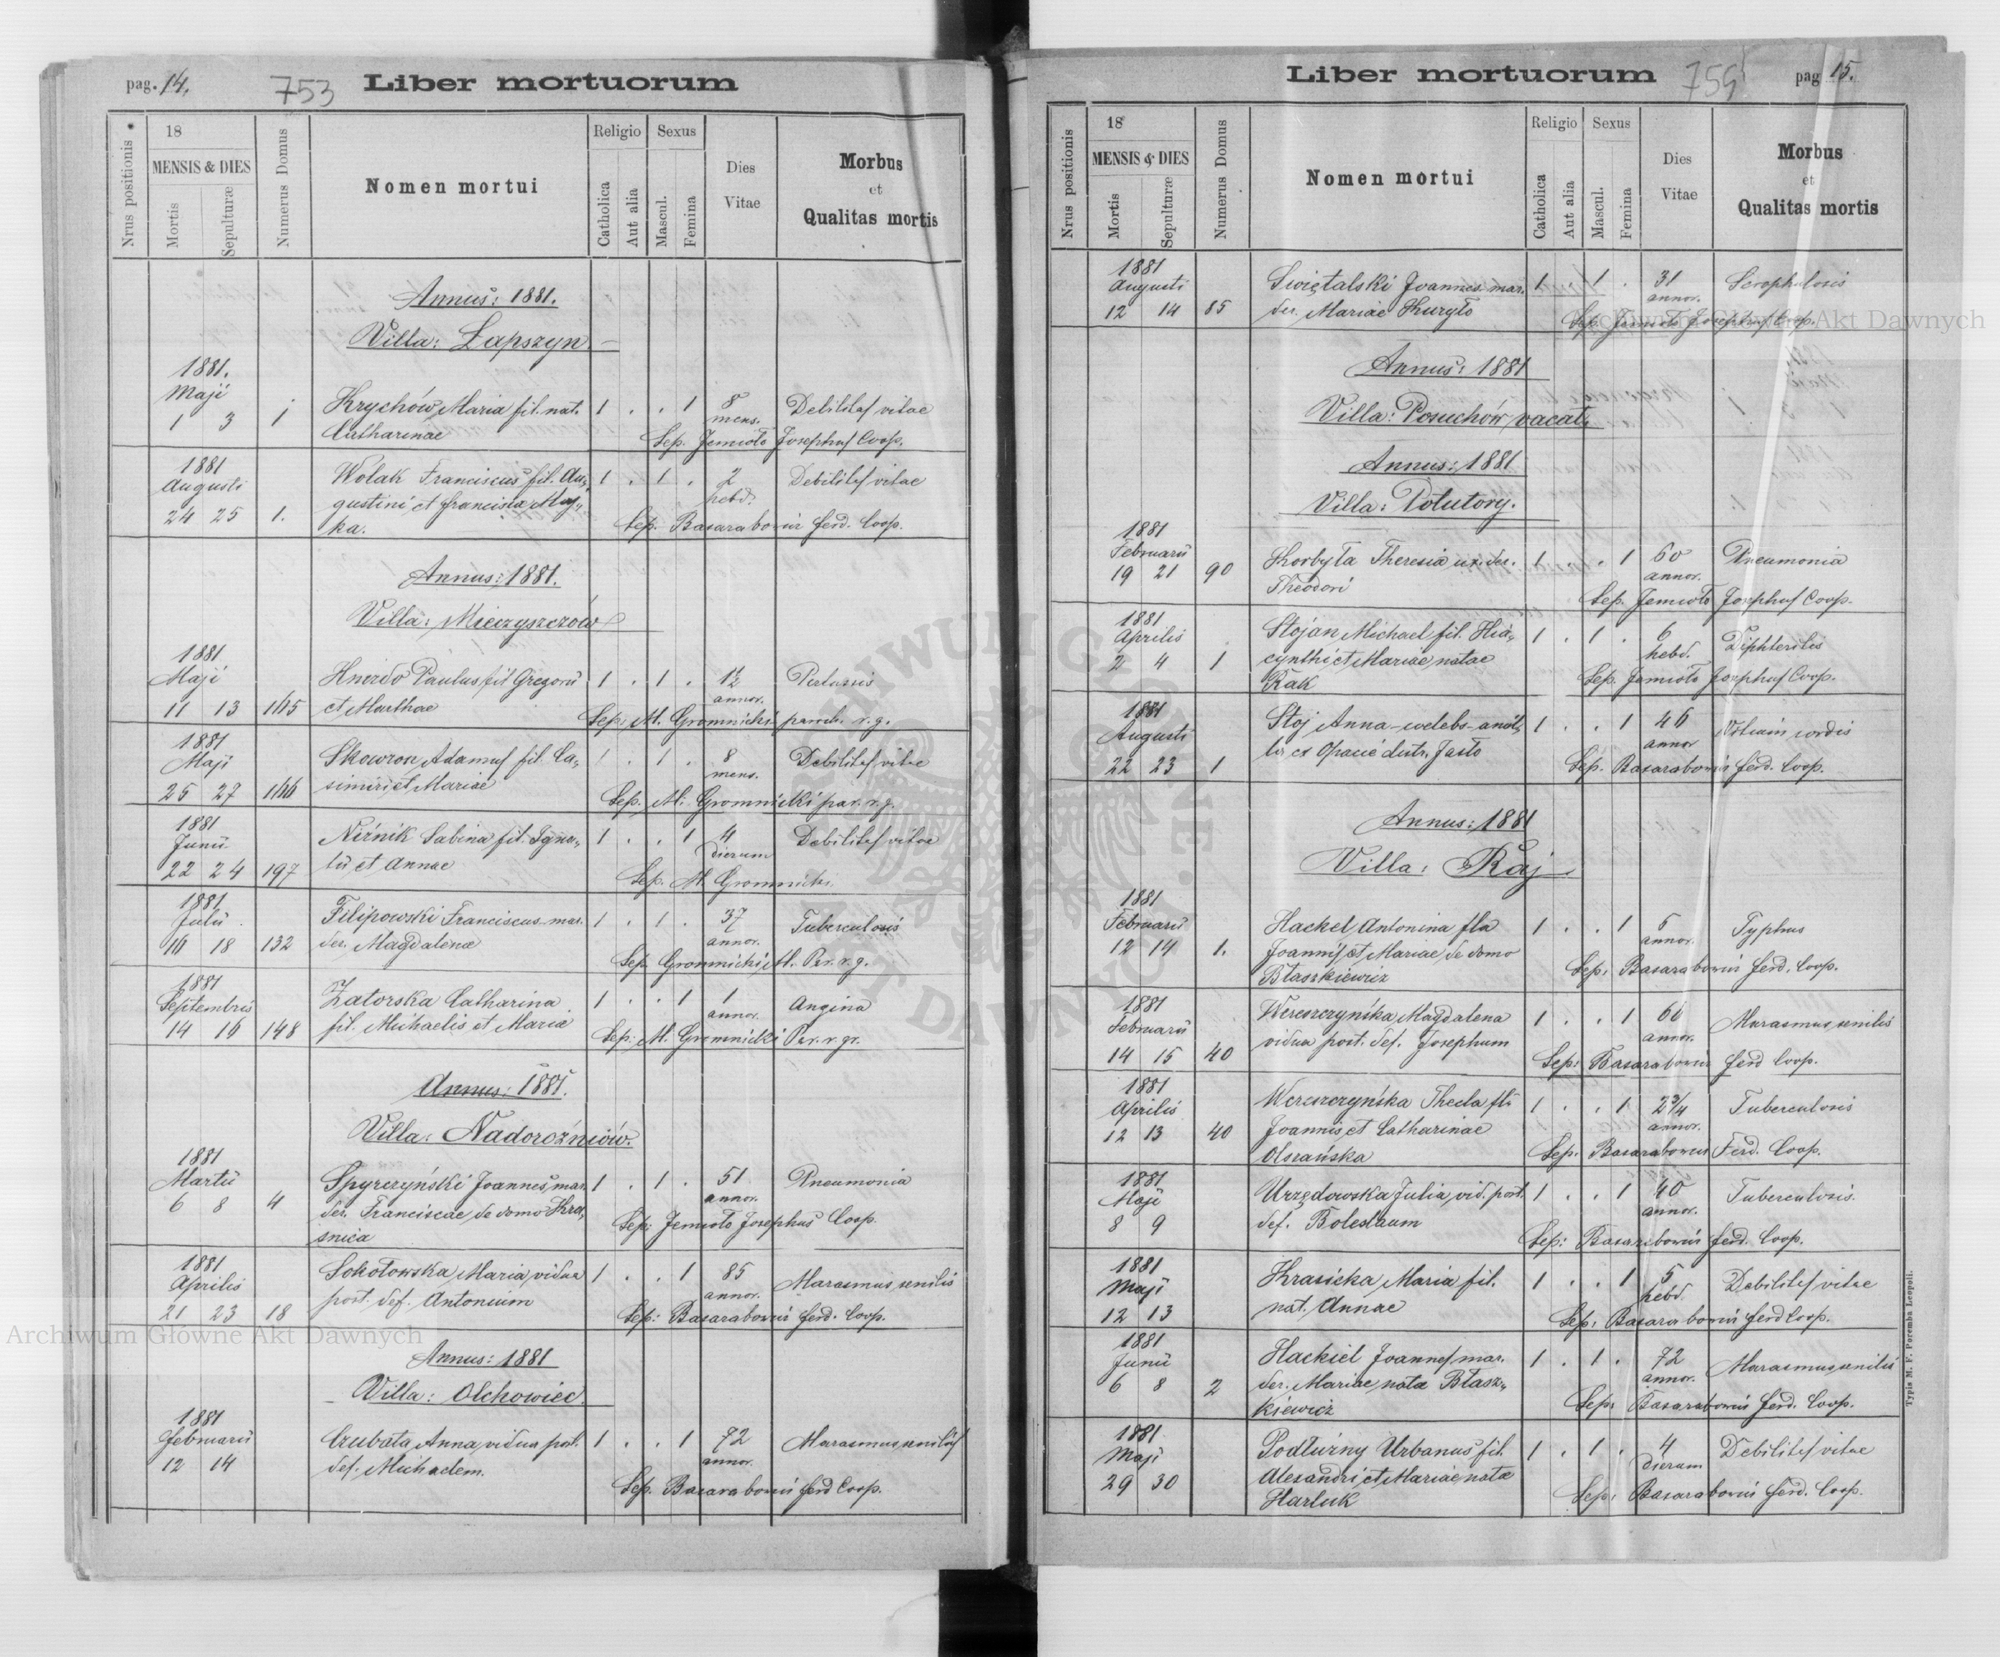 pag. 14.
753
Liber mortuorum
Nrus positionis
18
MENSIS & DIES
Mortis
Sepulturæ
Numerus Domus
Nomen mortui
Religio
Catholica
Aut alia
Sexus
Mascul.
Femina
Dies
Vitae
Morbus
et
Qualitas mortis
Annus: 1881.
Villa: Łapszyn
1881.
Maji
1 3 1 Krychów Maria fil. nat. 1 . . 1 8 mens. Debilitas vitae
Catharinae
Sep. Jemioło Josephus Coop.
1881
Augusti
24 25 1. Wolak Franciscus fil. Au-
gustini et Francisca Maj-
ka.
1 . 1 . 2 hebd. Debilitas vitae
Sep. Basarabowicz Ferd. Coop.
Annus: 1881.
Villa: Mieczyszczów
1881
Maji
11 13 165 Paulus fil Gregorii
et Marthae
1 . 1 . 1½ annor. Pertussis
Sep: M. Gromnicki paroch. r. g.
1881
Maji
25 27 166 Skowron Adamus fil. Ca-
simiri et Mariae
1 . 1 . 8 mens. Debilitas vitae
Sep. M. Gromnicki par. r. g.
1881
Junii
22 24 197 Niżnik Sabina fil. Igna-
tii et Annae
1 . . 1 4 dierum Debilitas vitae
Sep. M. Gromnicki
1881
Julii
16 18 132 Filipowski Franciscus mar.
der. Magdalenae
1 . 1 . 37 annor. Tuberculosis
Sep. Gromnicki M. Par. r. g.
1881
Septembris
14 16 148 Zatorska Catharina
fil. Michaelis et Maria
1 . . 1 1 annor. Angina
Sep: M. Gromnicki Par. r. gr.
Annus: 1881.
Villa: Nadorożniów.
1881
Martii
6 8 4 Spyrczyński Joannes, mar.
der. Franciscae de domo Kra-
śnica
1 . 1 . 51 annor. Pneumonia
Sep: Jemioło Josephus Coop.
1881
Aprilis
21 23 18 Sokołowska Maria, vidua
post. def. Antonium
1 . . 1 85 annor. Marasmus senilis
Sep: Basarabowicz Ferd. Coop.
Annus: 1881
Villa: Olchowiec.
1881
Februarii
12 14 Czubata Anna, vidua post.
def. Michaelem.
1 . . 1 72 annor. Marasmus senilis
Sep. Basarabowicz Ferd Coop.
Liber mortuorum
pag 15.
Nrus positionis
18
MENSIS & DIES
Mortis
Sepulturæ
Numerus Domus
Nomen mortui
Religio
Catholica
Aut alia
Sexus
Mascul.
Femina
Dies
Vitae
Morbus
et
Qualitas mortis
1881
Augusti
12 14 85 Swiętalski Joannes mar.
der. Mariae Kuryło
1 1 . 31 annor. Scrophulosis
Sep. Jemioło Josephus Coop.
Annus: 1881
Villa: Posuchów vacat.
Annus: 1881
Villa: Potutory.
1881
Februarii
19 21 90 Korbyła Theresia ux. der.
Theodori
1 . . 1 60 annor. Pneumonia
Sep. Jemioło Josephus Coop.
1881
Aprilis
2 4 1 Stojan Michael fil. Hia-
cynthi et Mariae natae
Rak
1 . 1 . 6 hebd. Diphteritis
Sep. Jemioło Josephus Coop.
1881
Augusti
22 23 1 Stoj Anna
Jasło
1 . . 1 46 annor cordis
Sep. Basarabowicz Ferd. Coop.
Annus: 1881
Villa: Raj
1881
Februarii
12 14 1. Hackel Antonina flia
Joannis et Mariae de domo
Błaszkiewicz
1 . . 1 5 annor. Typhus
Sep: Basarabowicz Ferd. Coop.
1881
Februarii
14 15 40 Wereszczyńska Magdalena
vidua post. def. Josephum
1 . . 1 66 annor. Marasmus senilis
Sep: Basarabowicz Ferd Coop.
1881
Aprilis
12 13 40 Wereszczyńska Thecla flia
Joannis et Catharinae
Olszańska
1 . . 1 2¾ annor. Tuberculosis
Sep. Basarabowicz Ferd. Coop.
1881
Maji
8 9 Urzędowska Julia, vid. post.
def. Boleslaum
1 . . 1 40 annor. Tuberculosis.
Sep: Basarabowicz Ferd. Coop.
1881
Maji
12 13 Krasicka Maria fil.
nat. Annae
1 . . 1 5 hebd. Debilitas vitae
Sep: Basarabowicz Ferd Coop.
1881
Junii
6 8 2 Hackiel Joannes mar.
der. Mariae nata Błasz-
kiewicz
1 . 1 . 72 annor. Marasmus senilis
Sep: Basarabowicz Ferd. Coop.
1881
Maji
29 30 Podlużny Urbanus fil.
Alexandri et Mariae nata
Harluk
1 . 1 . 4 dierum Debilitas vitae
Sep: Basarabowicz Ferd. Coop.
Typis M. F. Poremba Leopoli.
Archiwum Główne Akt Dawnych
Archiwum Główne Akt Dawnych
ARCHIWUM GŁÓWNE AKT DAWNYCH